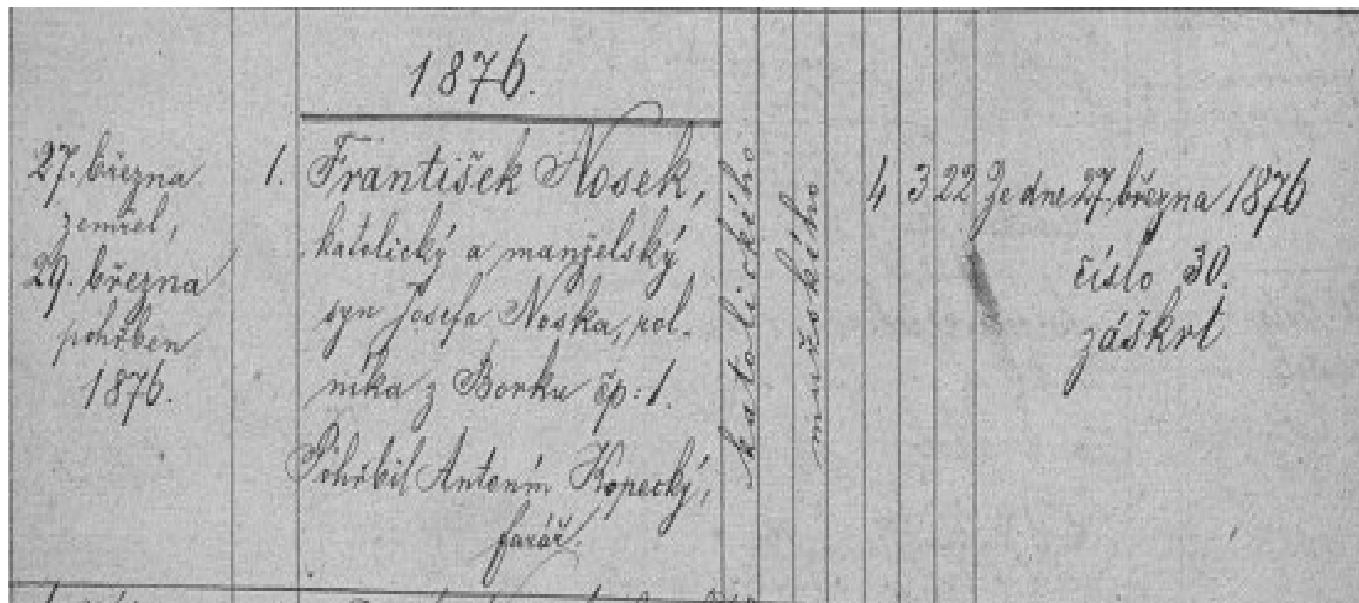 1876.
27. března
zemřel,
29. března
pohřben
1876.
1.
František Nosek,
katolický a manželský
syn Josefa Noska, rol-
níka z Borku čp: 1.
Pohřbil Antonín Kopecký,
farář.
katolického
mužského
4 3 22
Ze dne 27. března 1876
číslo 30.
záškrt